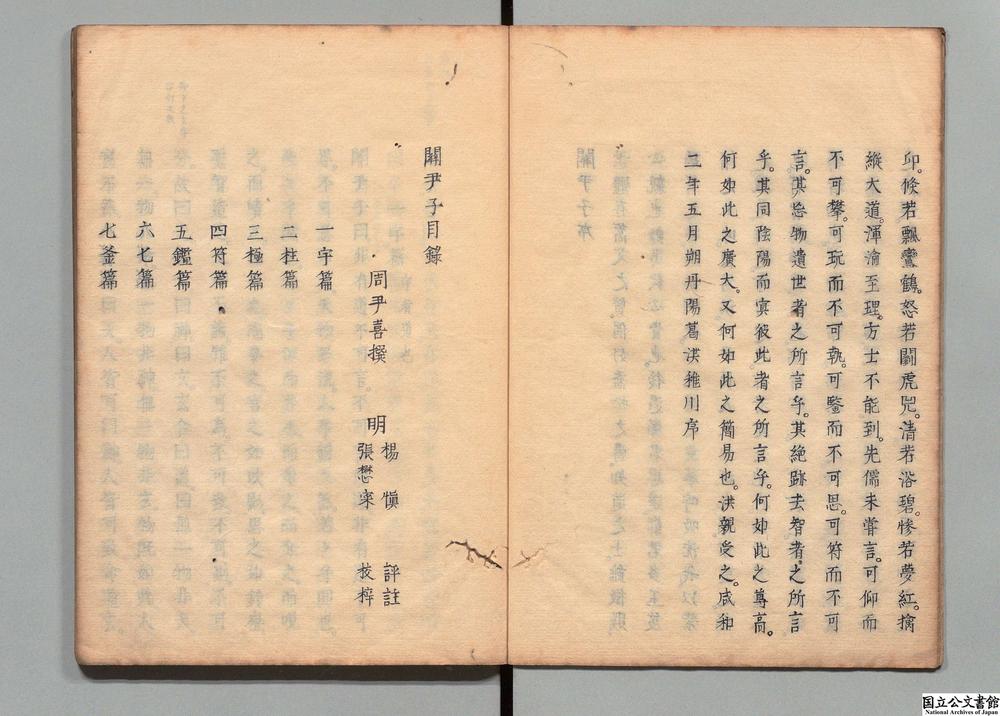 卬。倏若飄鸞鶴。怒若鬭虎兕。清若浴碧。慘若夢紅。擒
縱大道。渾淪至理。方士不能到。先儒未嘗言。可仰而
不可攀。可玩而不可執。可鑒而不可思。可符而不可
言。其忘物遺世者之所言乎。其絶跡去智者之所言
乎。其同陰陽而冥彼此者之所言乎。何如此之尊高。
何如此之廣大。又何如此之簡易也。洪親受之。咸和
二年五月朔丹陽葛洪稚川序
關尹子目錄
周尹喜撰
明 楊慎 評註
張懋寀 挍梓
一宇篇
二柱篇
三極篇
四符篇
五鑑篇
六七篇
七釜篇
国立公文書館
National Archives of Japan